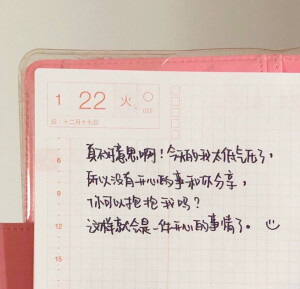 1 22 火
十二月十七日
6
真不好意思啊!今天的我太低气压了,
所以没有开心的事和你分享,
9
你可以抱抱我吗?
这样就会是一件开心的事情了。
12
15